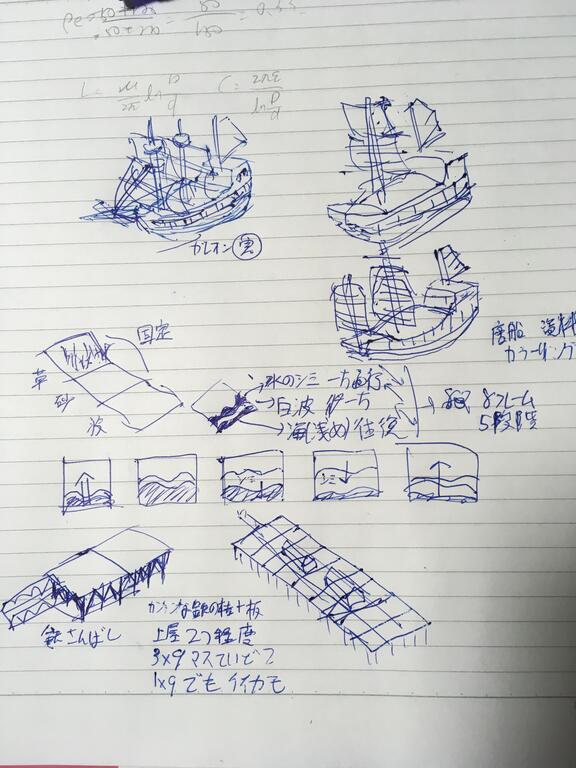 L = μ/2π ln D/d
C = 2πε / ln D/d
ガレオン 寅
唐船 資料
カラーリング
固定
草
砂
波
水のシミ 一方通行
白波 〃一方
海(浅め) 往復
8フレーム
5段階
シミ
シミ
鉄さんばし
鉄の柱+板
上屋2つ程度
3×9マスていどで
1×9でもイイカも